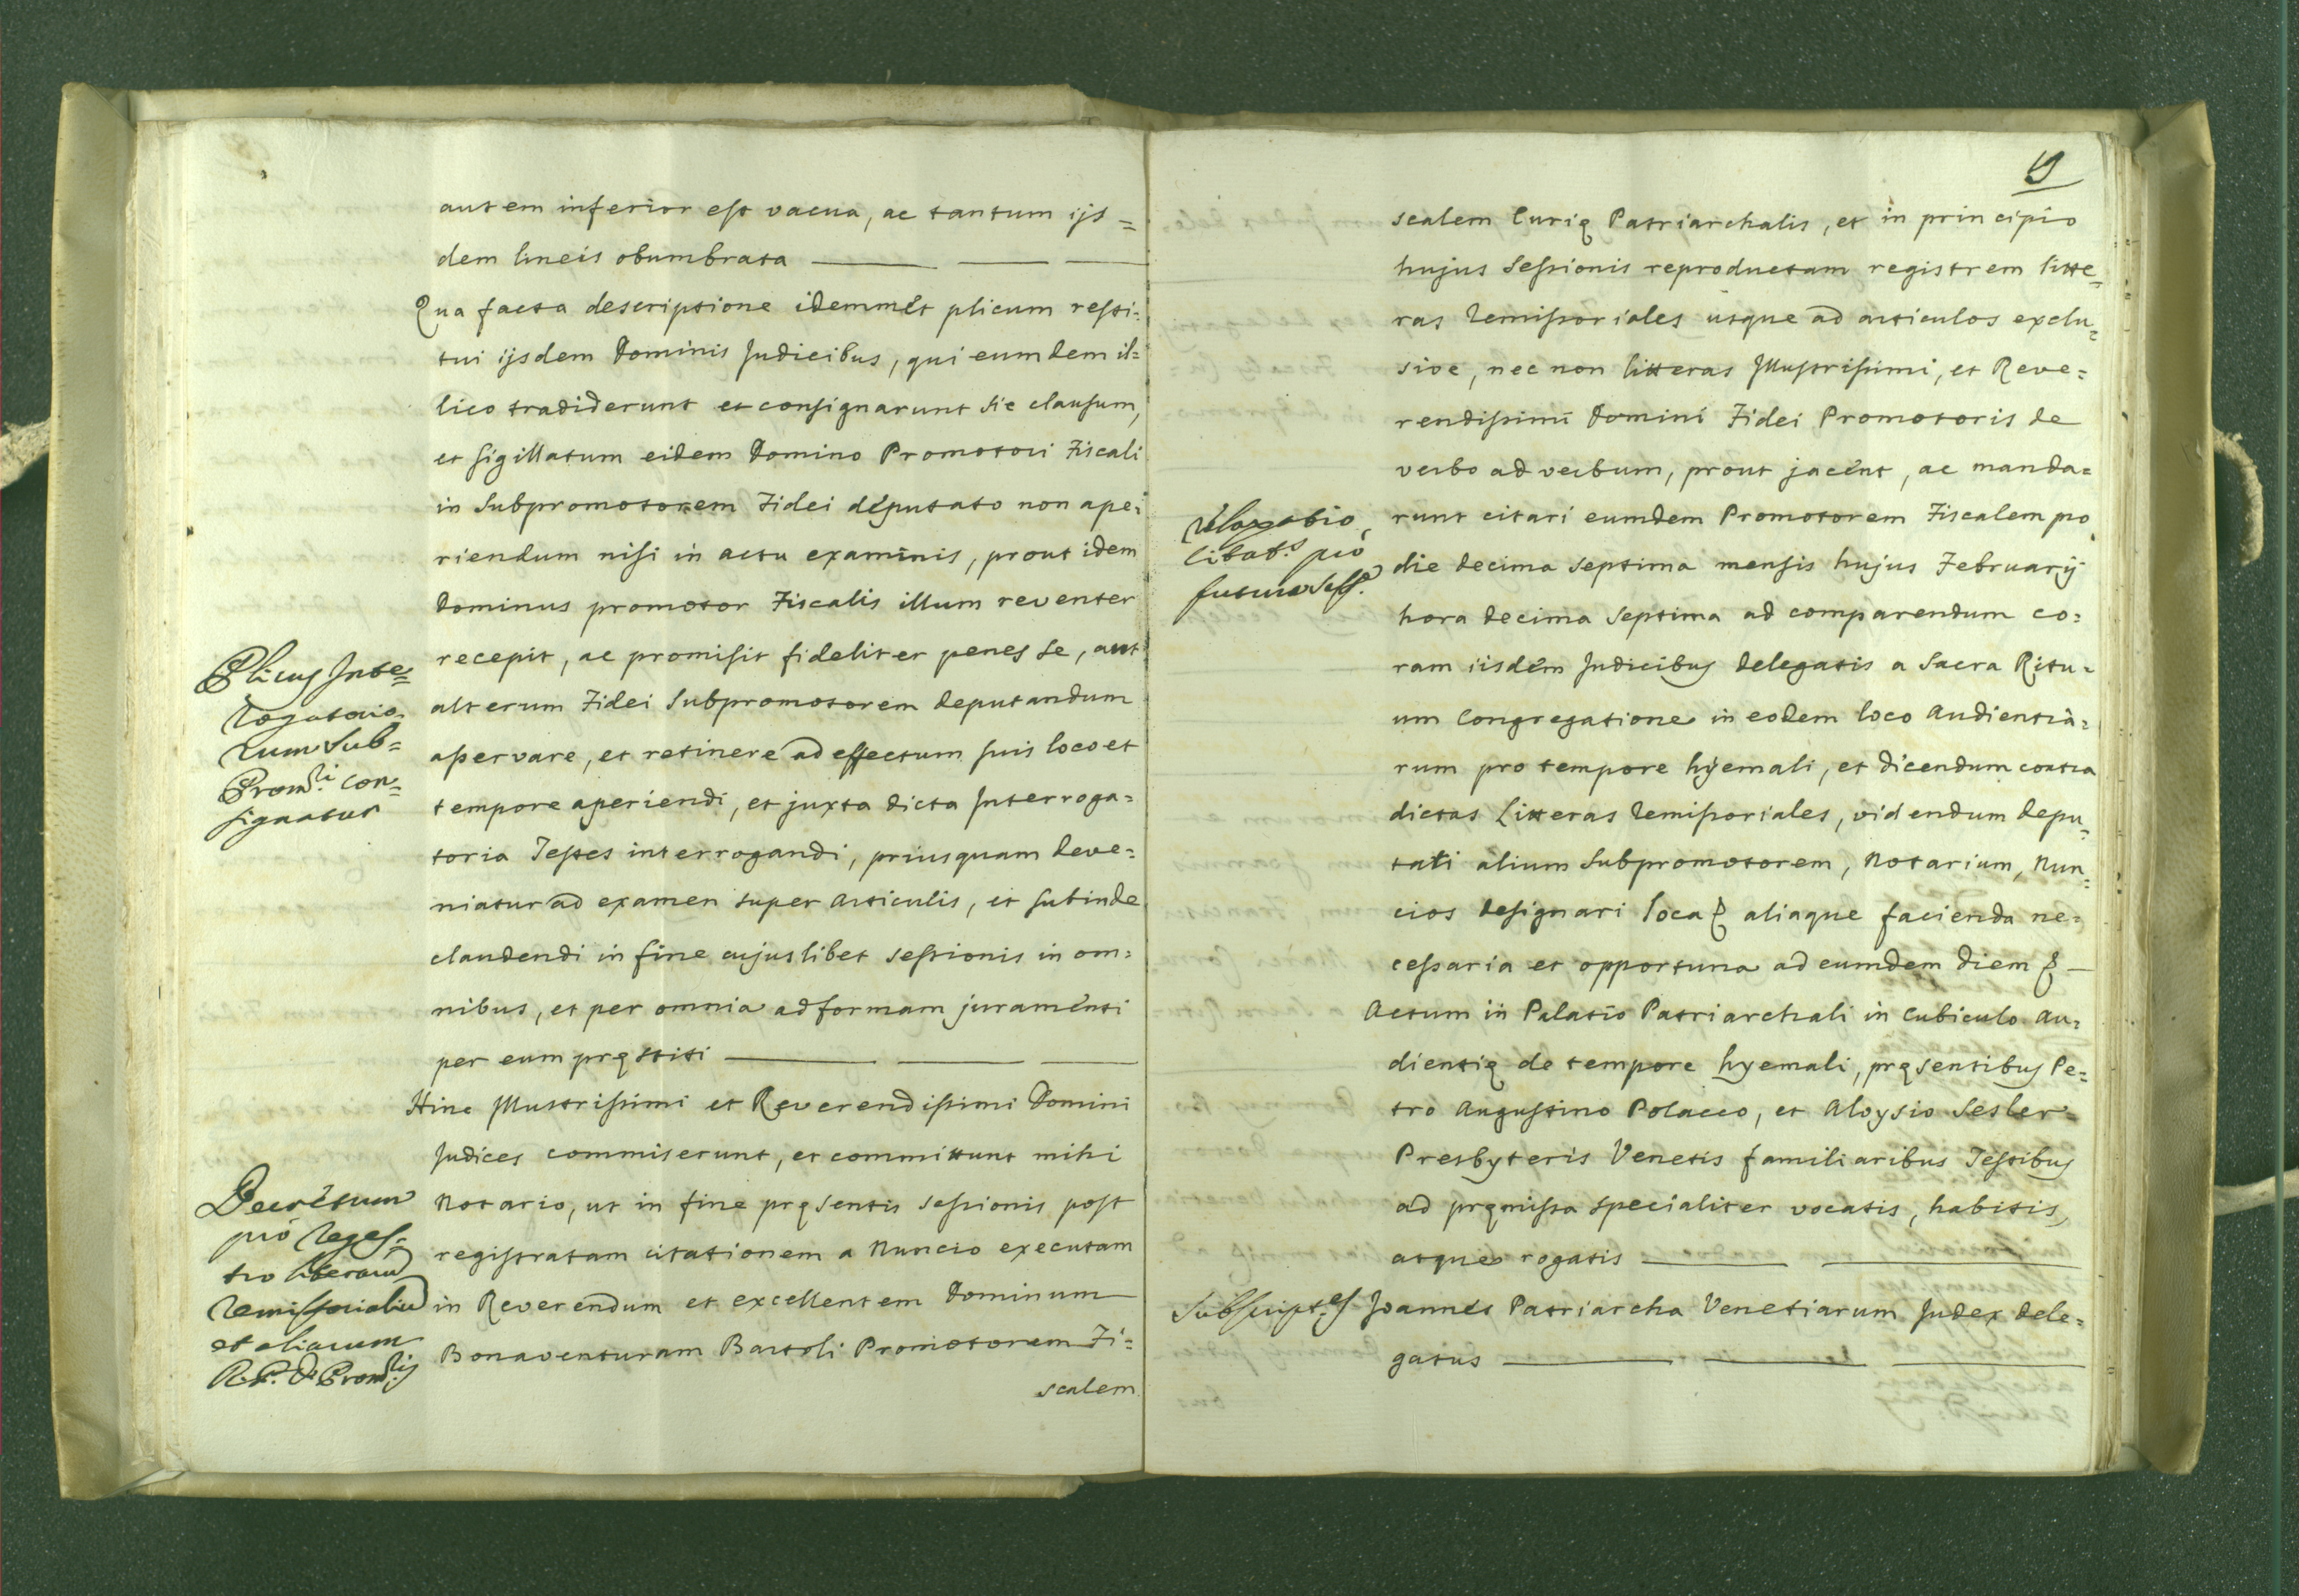 autem inferior est vacua, ac tantum ijs=
dem lineis obumbrata
Qua facta descriptione idemmet plicum resti=
tui ijsdem Dominis Judicibus, qui eumdem il=
lico tradiderunt et consignarunt sic clausum,
et sigillatum eidem Domino Promotori Fiscali
in Subpromotorem Fidei deputato non ape=
riendum nisi in actu examinis, prout idem
Dominus promotor Fiscalis illum reventer
recepit, ac promisit fideliter penes se, aut
alterum Fidei Subpromotorem deputandum
asservare, et retinere ad effectum suis loco et
tempore aperiendi, et juxta dicta Interroga=
toria Testes interrogandi, priusquam deve=
niatur ad examen super articulis, et subinde
claudendi in fine cujuslibet sessionis in om=
nibus, et per omnia ad formam juramenti
per eum pręstiti
Hinc Illustrissimi et Reverendissimi Domini
Judices commiserunt, et committunt mihi
Notario, ut in fine pręsentis sessionis post
registratam citationem a Nuncio executam
in Reverendum et excellentem Dominum
Bonaventuram Bartoli Promotorem Fi=
scalem
Plicus Inte=
rogatorio=
rum Sub=
Prom.ri con=
signatus
Decretum
pro reges=
tro literarum
remissorialium
et aliarum
R. P. D. Prom.ris
9
scalem Curię Patriarchalis, et in principio
hujus Sessionis reproductam registrem litte=
ras remissoriales usque ad articulos exclu=
sive, nec non litteras Illustrissimi, et Reve=
rendissimi Domini Fidei Promotoris de
verbo ad verbum, prout jacent, ac manda=
runt citari eumdem Promotorem Fiscalem pro
die decima septima mensis hujus Februarij
hora decima septima ad comparendum co=
ram iisdem Judicibus delegatis a Sacra Ritu=
um Congregatione in eodem loco Audientia=
rum pro tempore hyemali, et dicendum contra
dictas Litteras remissoriales, videndum depu=
tati alium Subpromotorem, Notarium, Nun=
cios designari loca & aliaque facienda ne=
cessaria et opportuna ad eumdem diem &
Actum in Palatio Patriarchali in cubiculo Au=
dientię de tempore hyemali, pręsentibus Pe=
tro Augustino Polacco, et Aloysio Sesler
Presbyteris Venetis familiaribus Testibus
ad pręmissa specialiter vocatis, habitis,
atque rogatis
Joannes Patriarcha Venetiarum Judex dele=
gatus
Citat.s pro
futura Sess.e
Subscript.es